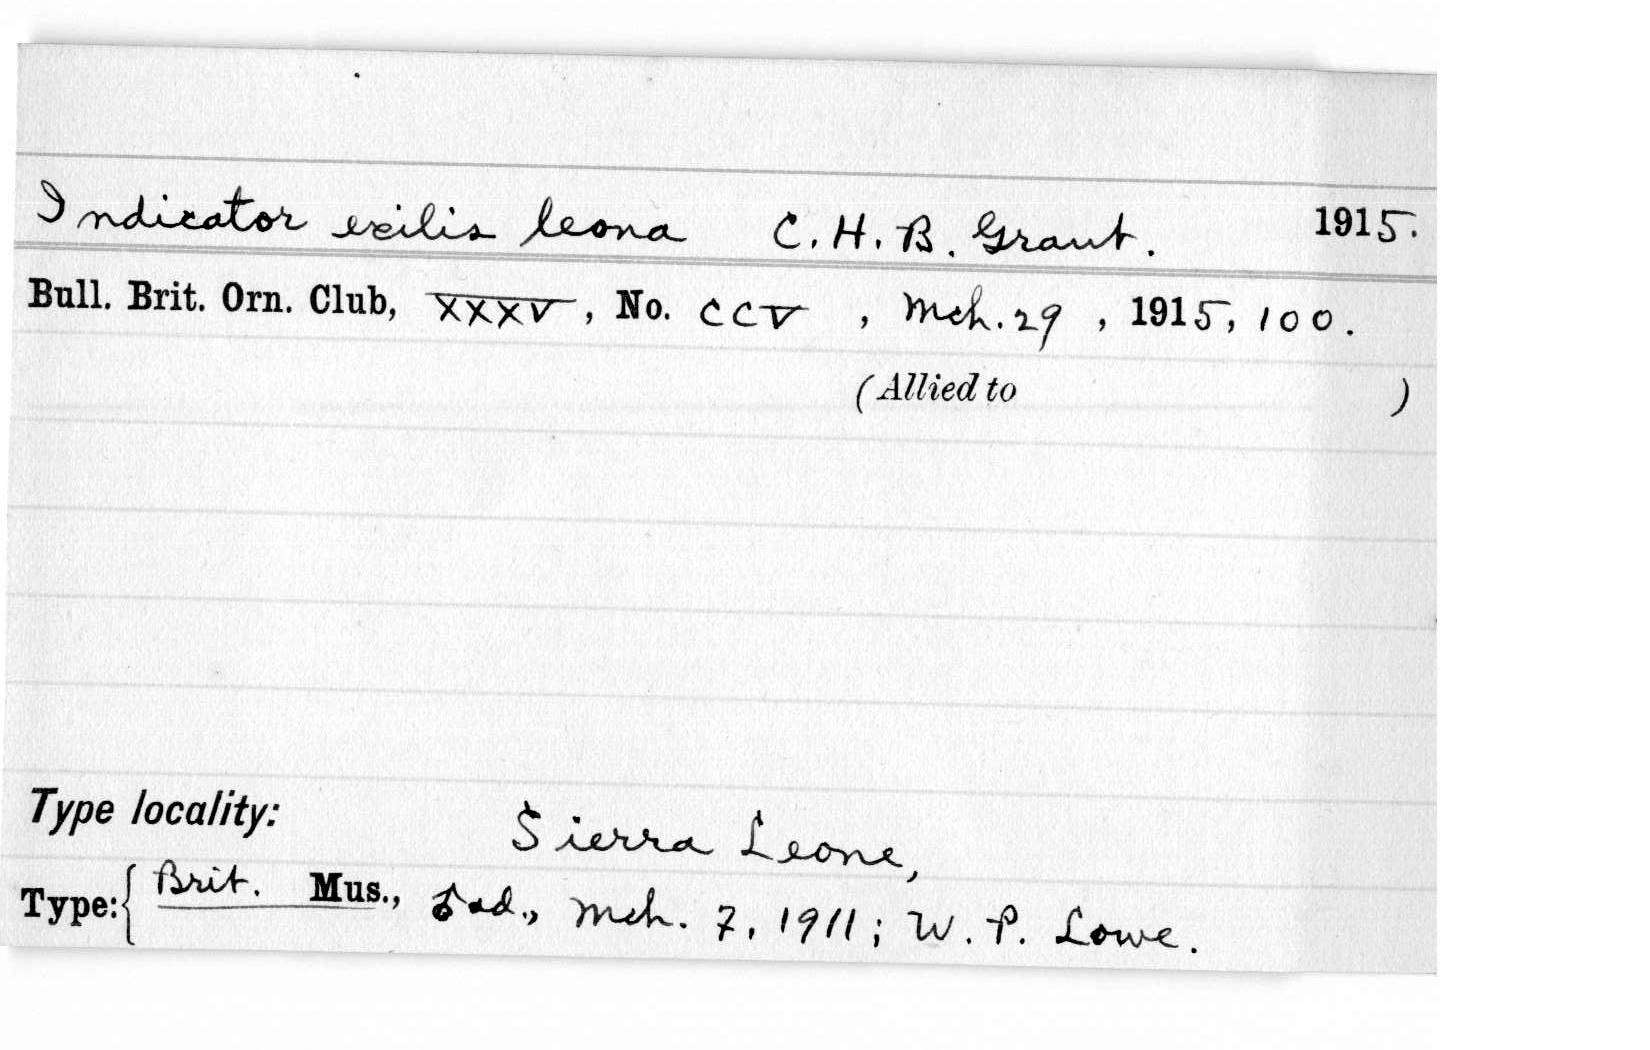 Indicator exilis leona C. H. B. Grant. 1915.
Bull. Brit. Orn. Club, XXXV, No. CCV, Mch. 29, 1915, 100.
(Allied to )
Type locality: Sierra Leone,
Type: { Brit. Mus., ad., Mch. 7, 1911; W. P. Lowe.